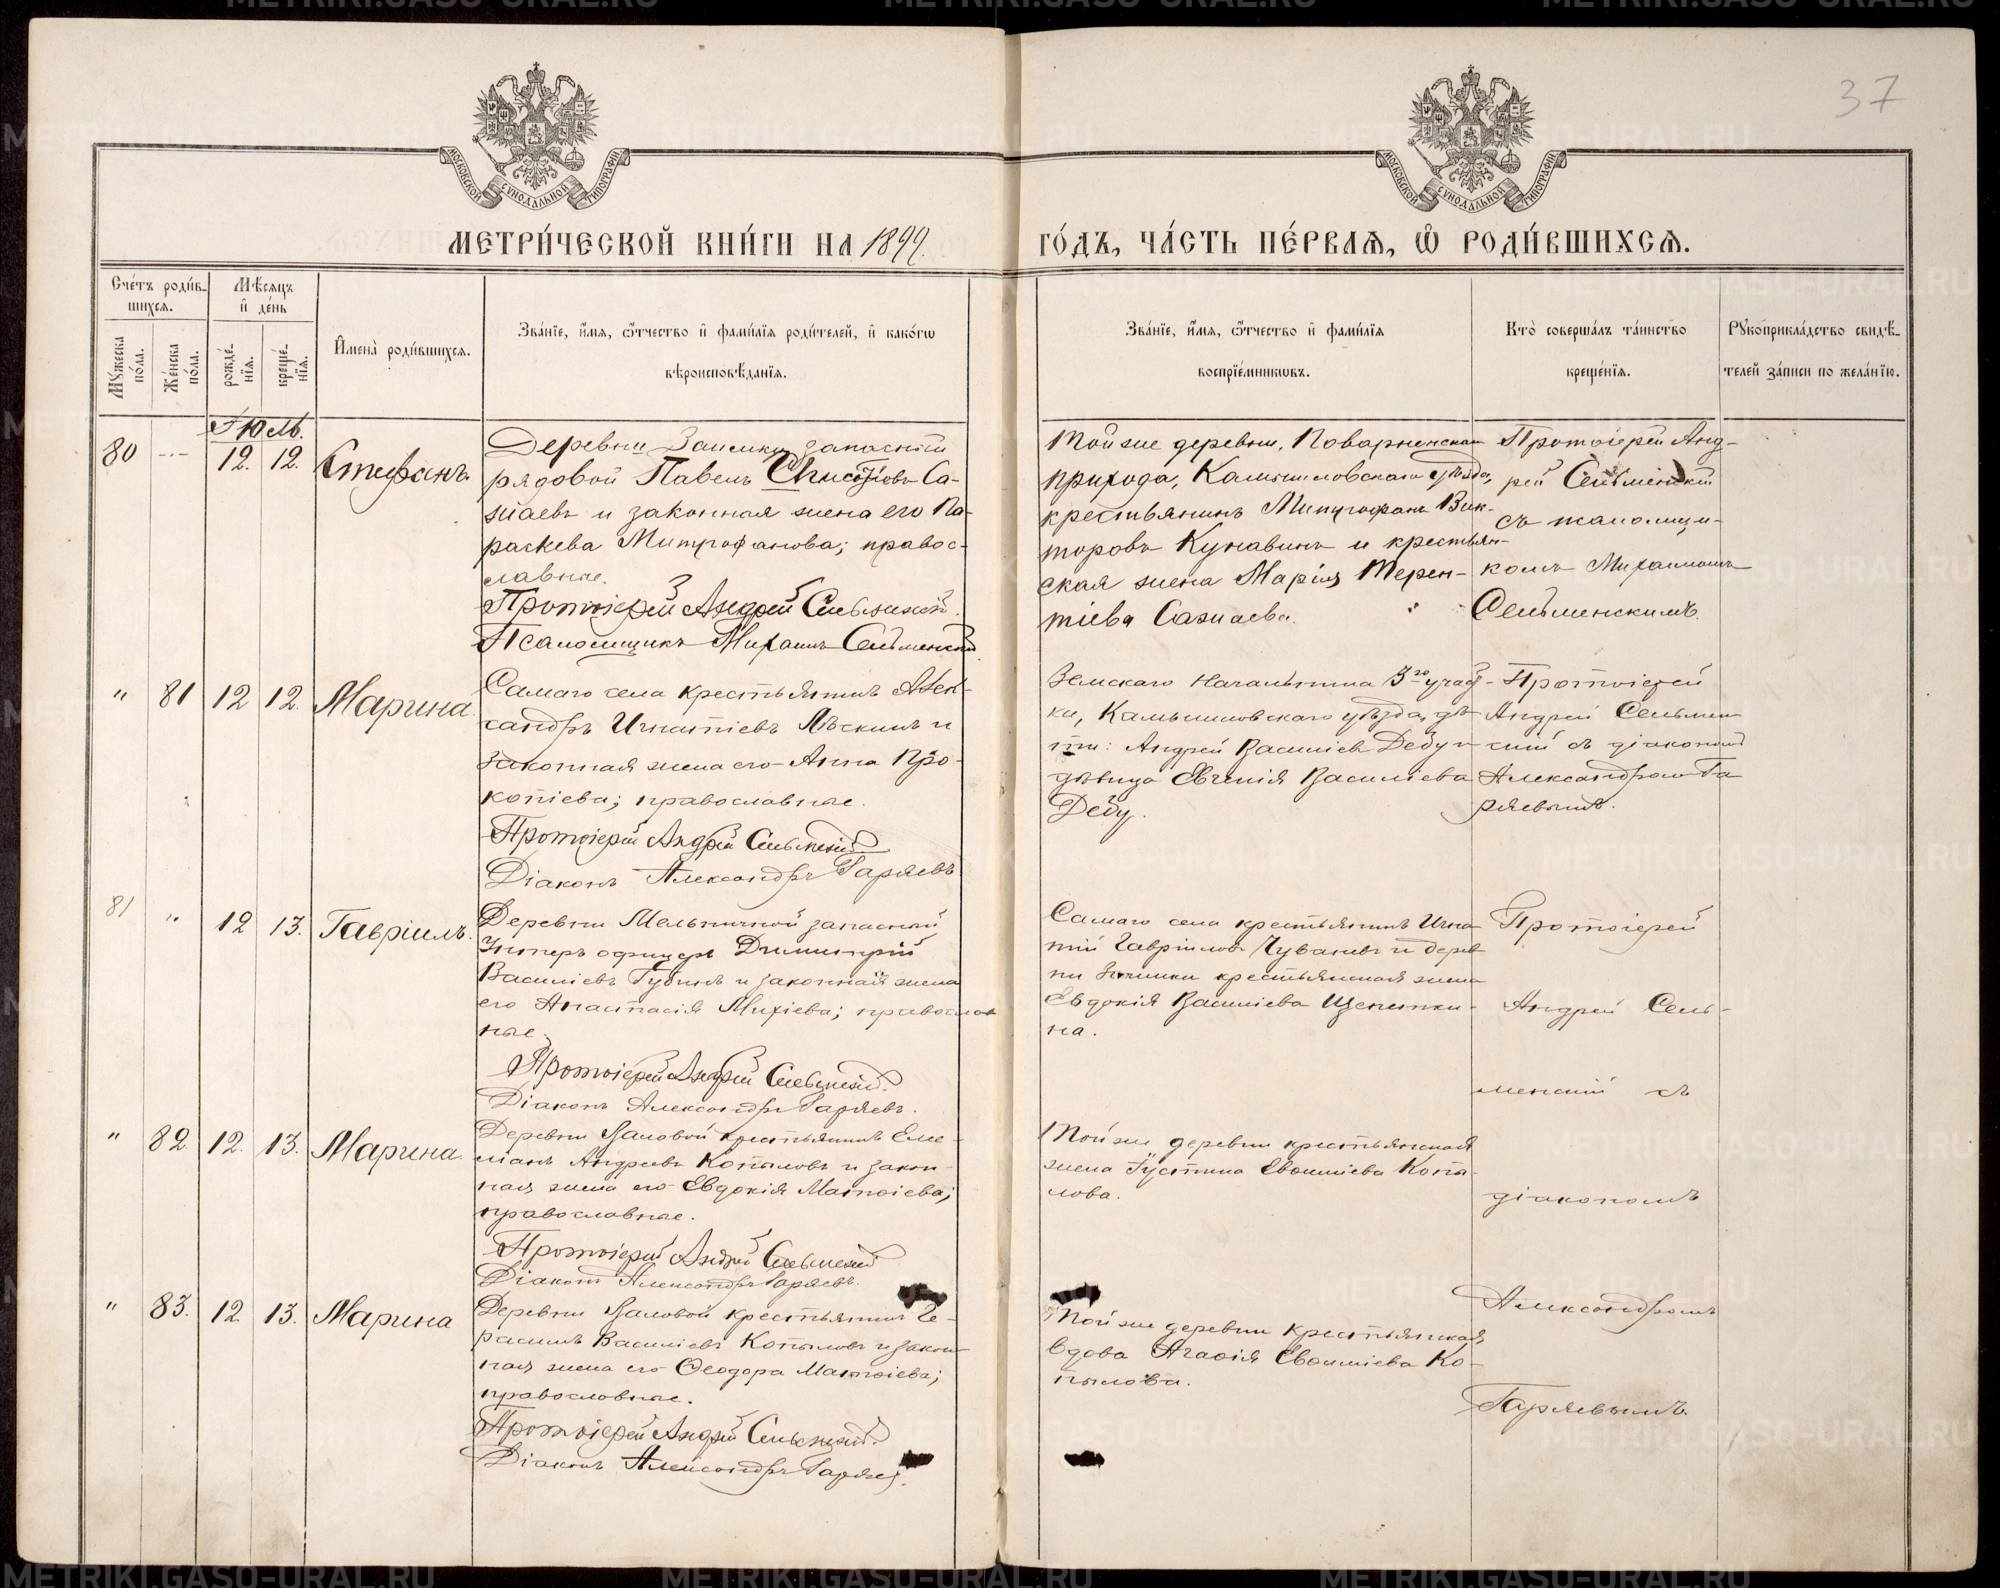 37
МОСКОВСКОЙ СѴНОДАЛЬНОЙ ТИПОГРАФІИ
МОСКОВСКОЙ СѴНОДАЛЬНОЙ ТИПОГРАФІИ
МЕТРИ́ЧЕСКОЙ КНИ́ГИ НА 1899.
ГО́ДЪ, ЧА́СТЬ ПЕ́РВАѦ, Ѽ РОДИ́ВШИХСѦ.
Сче́тъ роди́в-
шихсѧ.
Мꙋ́жеска по́ла.
Же́нска по́ла.
Мѣ́сѧцъ
и҆ де́нь
рожде́-
нїѧ.
креще́-
нїѧ.
И҆мена̀ роди́вшихсѧ.
Зва́нїе, и҆́мѧ, ѻ҆́тчество и҆ фами́лїѧ роди́телей, и҆ како́гѡ
вѣроисповѣ́данїѧ.
Зва́нїе, и҆́мѧ, ѻ҆́тчество и҆ фами́лїѧ
воспрїе́мникѡвъ.
Кто̀ соверша́лъ та́инство
креще́нїѧ.
Рꙋкоприкла́дство свидѣ́-
телей за́писи по жела́нїю.
Іюль.
80 -·- 12. 12. Стефанъ.
Деревни Заимки запасный
рядовой Павелъ Са-
жаевъ и законная жена его Па-
раскева Митрофанова; правос-
лавные.
Протоіерей Андрей Сельменскій.
Псаломщикъ Михаилъ Сельменскій
Той же деревни, Поварненскаго
прихода, Камышловскаго уѣзда,
крестьянинъ Митрофанъ Вик-
торовъ Кунавинъ и крестьян-
ская жена Марія Терен-
тіева Сажаева.
Протоіерей Анд-
рей Сельменскій
съ псаломщи-
комъ Михаиломъ
Сельменскимъ.
" 81 12 12. Марина
Самаго села крестьянинъ Алек-
сандръ Игнатіевъ Лѣскинъ и
законная жена его Анна Про-
копіева; православные.
Протоіерей Андрей Сельменскій
Діаконъ Александръ Гаряевъ
Земскаго Начальника 3го участ-
ка, Камышловскаго уѣзда, дѣ-
ти: Андрей Василіевъ Дебу и
дѣвица Евгенія Василіева
Дебу.
Протоіерей
Андрей Сельмен-
скій съ діакономъ
Александромъ Га-
ряевымъ.
81 " 12 13. Гавріилъ.
Деревни Мельничной запасный
Унтеръ офицеръ Димитрій
Василіевъ Губинъ и законная жена
его Анастасія Михіева; православ-
ные.
Протоіерей Андрей Сельменскій.
Діаконъ Александръ Гаряевъ.
Самаго села крестьянинъ Игна-
тій Гавріиловъ Чувакинъ и дерев-
ни Заимки крестьянская жена
Евдокія Василіева Щепетки-
на.
Протоіерей
Андрей Сель-
менскій съ
діакономъ
Александромъ
Гаряевымъ.
" 82 12. 13. Марина.
Деревни Валовой крестьянинъ Еме-
ліанъ Андреевъ Копыловъ и закон-
ная жена его Евдокія Матѳіева;
православные.
Протоіерей Андрей Сельменскій
Діаконъ Александръ Гаряевъ.
Той же деревни крестьянская
жена Іустина Евѳиміева Копы-
лова.
" 83. 12. 13. Марина
Деревни Валовой крестьянинъ Ге-
расимъ Василіевъ Копыловъ и закон-
ная жена его Ѳеодора Матѳіева;
православные.
Протоіерей Андрей Сельменскій.
Діаконъ Александръ Гаряевъ.
Той же деревни крестьянская
вдова Агаѳія Евѳиміева Ко-
пылова.
METRIKI.GASO-URAL.RU